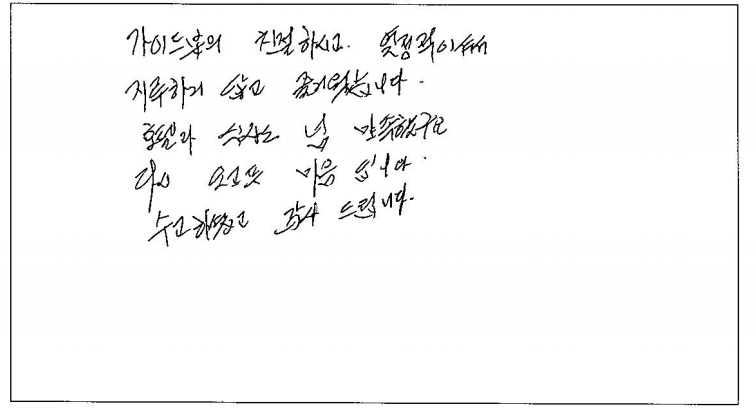 가이드분의 친절하시고. 열정적이셔서
지루하지 않고 즐거웠습니다.
호텔과 식사도 넘 만족했구요
다시 오고픈 마음 입니다.
수고하셨고 감사 드립니다.